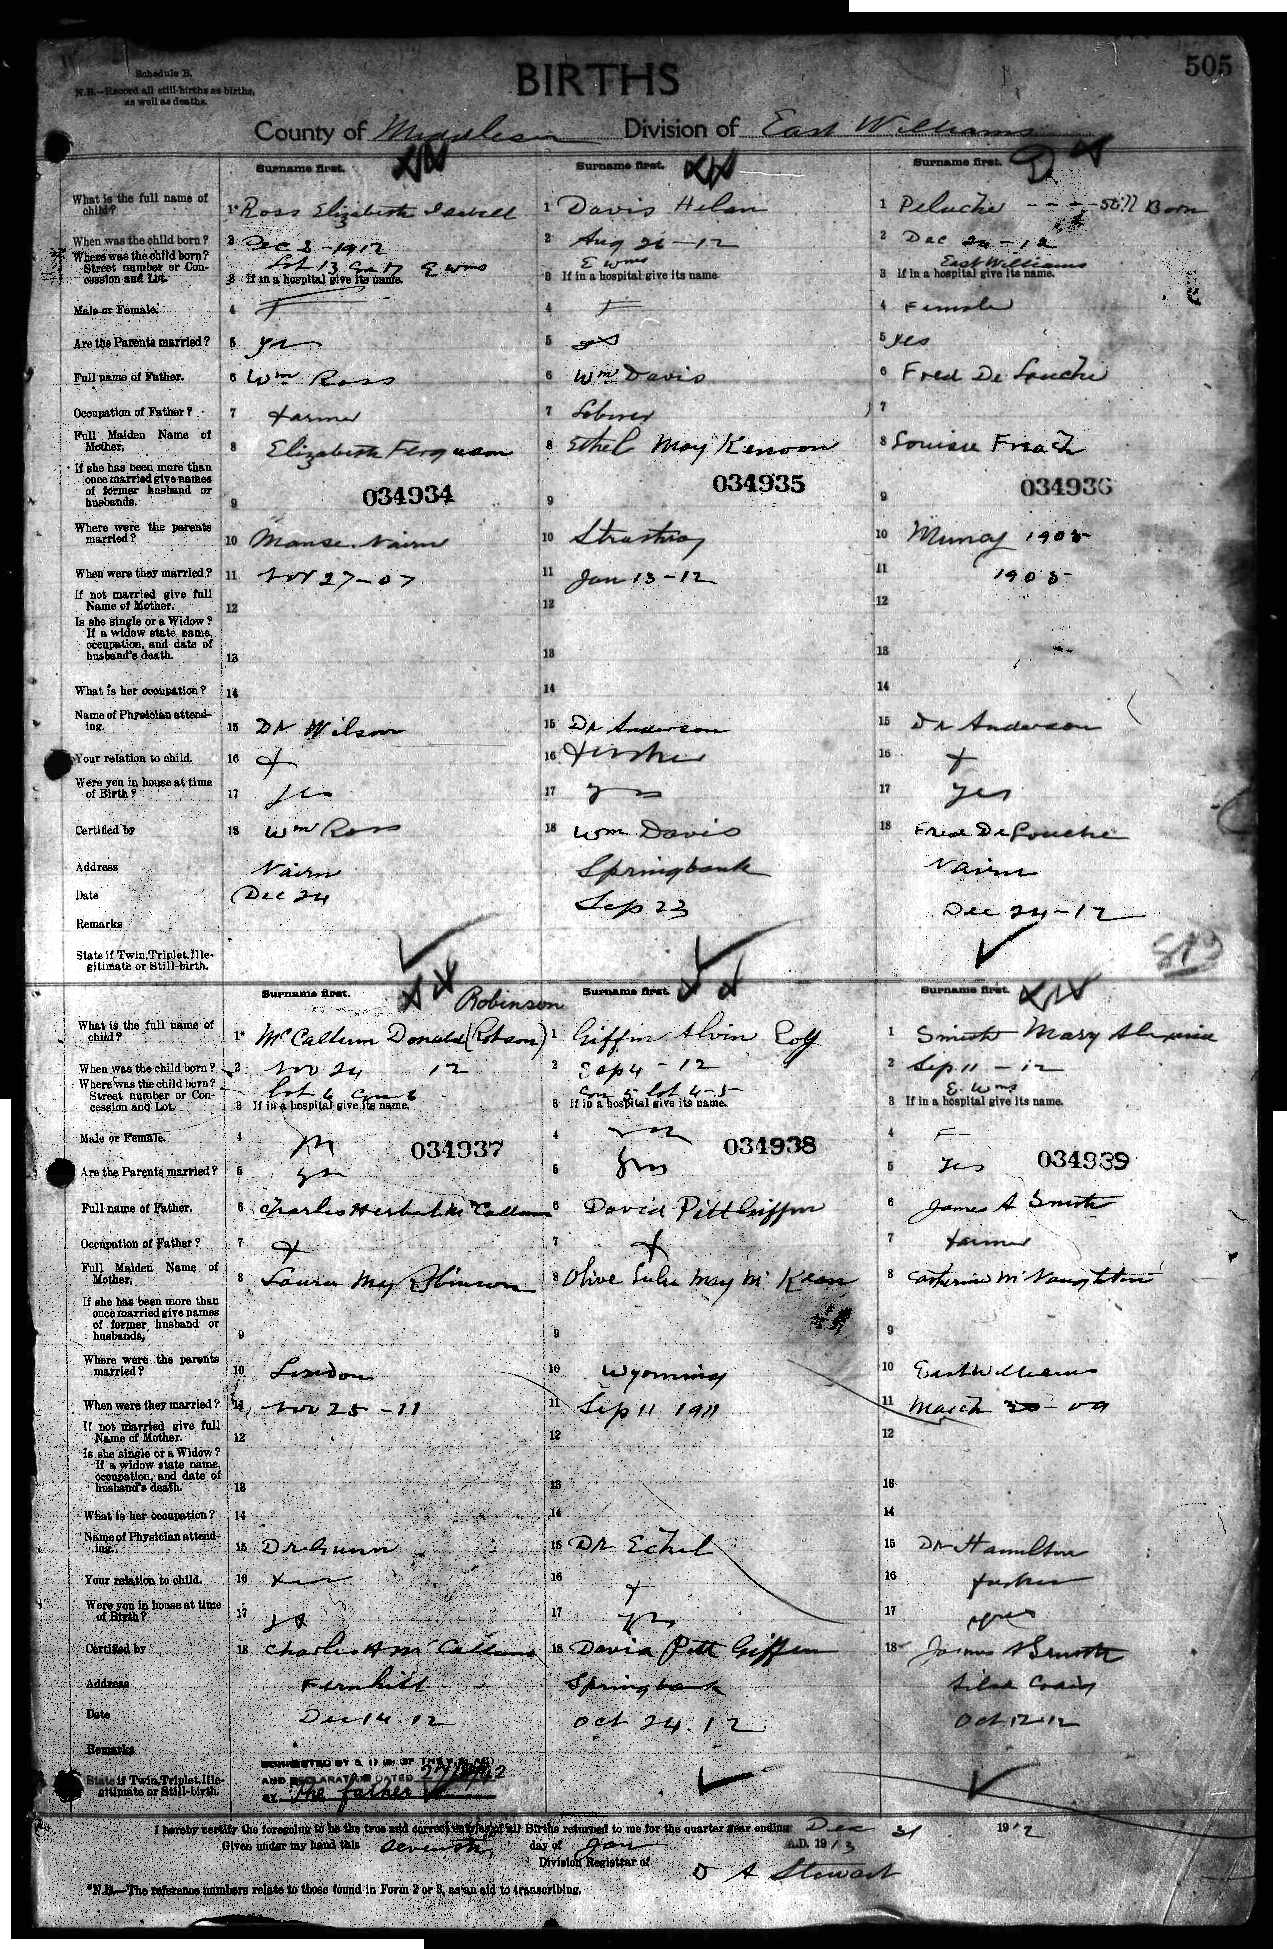 505
Schedule B.
N.B.—Record all still-births as births,
as well as deaths.
BIRTHS
County of Middlesex Division of East Williams
Surname first. Surname first. Surname first.
What is the full name of
child?
1* Ross Elizabeth Isabell
1 Davis Helen
1 Peluche - - - - Still Born
When was the child born?
2 Dec 8 - 1912
2 Aug 26 - 12
2 Dec 24 - 12
Where was the child born?
Street number or Con-
cession and Lot.
Lot 13 Con 17 E Wms
E Wms
East Williams
3 If in a hospital give its name.
3 If in a hospital give its name.
3 If in a hospital give its name.
Male or Female.
4 F
4 F
4 Female
Are the Parents married?
5 yes
5 yes
5 yes
Full name of Father.
6 Wm Ross
6 Wm Davis
6 Fred De Louche
Occupation of Father?
7 farmer
7 Laborer
7
Full Maiden Name of
Mother.
8 Elizabeth Ferguson
8 Ethel May
8 Louise
If she has been more than
once married give names
of former husband or
husbands.
9 034934
9 034935
9 034936
Where were the parents
married?
10 Manse Nairn
10 Strathroy
10 1905
When were they married?
11 Nov 27-07
11 Jan 13-12
11 1905
If not married give full
Name of Mother.
12
12
12
Is she single or a Widow?
If a widow state name,
occupation, and date of
husband's death.
13
13
13
What is her occupation?
14
14
14
Name of Physician attend-
ing.
15 Dr Wilson
15 Dr Anderson
15 Dr Anderson
Your relation to child.
16 f
16 father
16 f
Were you in house at time
of Birth?
17 yes
17 yes
17 yes
Certified by
18 Wm Ross
18 Wm Davis
18 Fred De Louche
Address
Nairn
Springbank
Nairn
Date
Dec 24
Sep 23
Dec 24-12
Remarks
State if Twin, Triplet, Ille-
gitimate or Still-birth.
Surname first. Surname first. Surname first.
Robinson
What is the full name of
child?
1* McCallum Donald (Robson)
1 Giffin Alvin Roy
1 Smith Mary
When was the child born?
2 Nov 24 12
2 Sep 4 - 12
2 Sep 11 - 12
Where was the child born?
Street number or Con-
cession and Lot.
Lot 6 Con 6
Con 5 Lot 4-5
E Wms
3 If in a hospital give its name.
3 If in a hospital give its name.
3 If in a hospital give its name.
Male or Female.
4 M 034937
4 m 034938
4 F 034939
Are the Parents married?
5 yes
5 yes
5 yes
Full name of Father.
6 Charles Herbert McCallum
6 David Pitt Giffin
6 James A Smith
Occupation of Father?
7 f
7 f
7 farmer
Full Maiden Name of
Mother.
8 Laura May Robinson
8 Olive Julia May McKean
8 Catherine McNaughton
If she has been more than
once married give names
of former husband or
husbands,
9
9
9
Where were the parents
married?
10 London
10 Wyoming
10 East Williams
When were they married?
11 Nov 25 - 11
11 Sep 11 1911
11 March 30 - 09
If not married give full
Name of Mother.
12
12
12
Is she single or a Widow?
If a widow state name,
occupation, and date of
husband's death.
13
13
13
What is her occupation?
14
14
14
Name of Physician attend-
ing.
15 Dr Gunn
15 Dr Echel
15 Dr Hamilton
Your relation to child.
16
16 f
16 father
Were you in house at time
of Birth?
17 yes
17 yes
17 yes
Certified by
18 Charles H McCallum
18 David Pitt Giffin
18 James A Smith
Address
Fernhill
Springbank
Ailsa Craig
Date
Dec 14 12
Oct 24. 12
Oct 12 12
Remarks
CORRECTED BY
State if Twin, Triplet, Ille-
gitimate or Still-birth.
AND DECLARATION DATED
BY the father
I hereby certify the foregoing to be the true and correct entries of all Births returned to me for the quarter year ending Dec 31 1912
Given under my hand this seventh day of Jan A.D. 1913
Division Registrar of D A Stewart
*N.B.—The reference numbers relate to those found in Form 2 or 3, as an aid to transcribing.